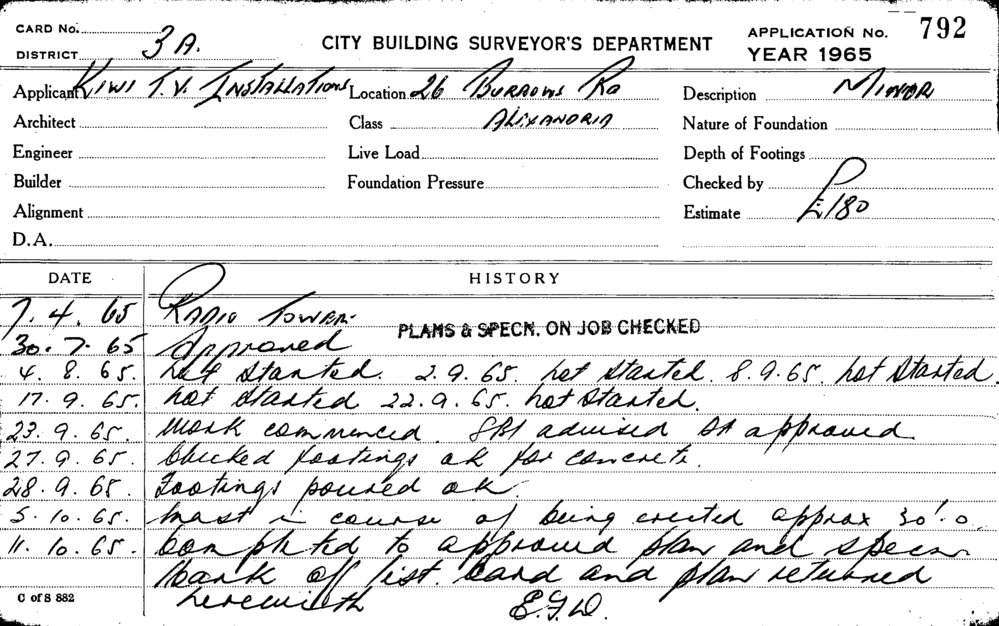 CARD No. 3A. CITY BUILDING SURVEYOR'S DEPARTMENT APPLICATION No. 792
DISTRICT YEAR 1965
Applicant KIWI T.V. INSTALLATIONS Location 26 BURROWS RD Description MINOR
Architect Class ALEXANDRIA Nature of Foundation
Engineer Live Load Depth of Footings
Builder Foundation Pressure Checked by
Alignment Estimate £180
D.A.
DATE HISTORY
7.4.65 RADIO TOWER.
PLANS & SPECN. ON JOB CHECKED
30.7.65 Approved
4.8.65. Not started. 2.9.65. Not started. 8.9.65. Not started.
17.9.65. Not started 22.9.65. Not started.
23.9.65. Work commenced. advised approved
27.9.65. Checked footings ok for concrete.
28.9.65. Footings poured ok.
5.10.65. Mast in course of being erected approx 30'.0
11.10.65. Completed to approved plan and specn
Mark off list. Card and plan returned
herewith E.G.W.
C of S 882